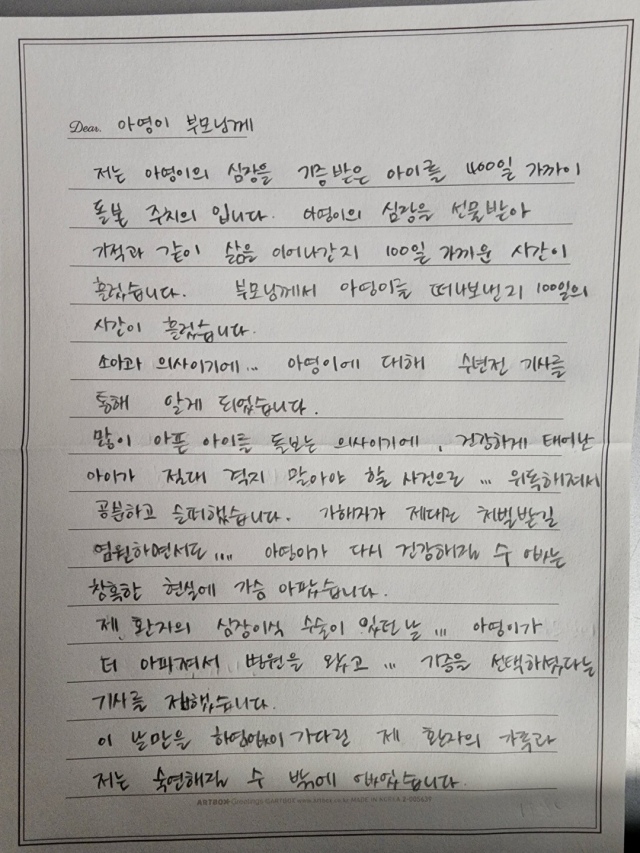 Dear. 아영이 부모님께
저는 아영이의 심장을 기증 받은 아이를 400일 가까이
돌본 주치의 입니다. 아영이의 심장을 선물받아
기적과 같이 삶을 이어나간지 100일 가까운 시간이
흘렀습니다. 부모님께서 아영이를 떠나보낸지 100일의
시간이 흘렀습니다.
소아과 의사이기에... 아영이에 대해 수년전 기사를
통해 알게 되었습니다.
많이 아픈 아이를 돌보는 의사이기에, 건강하게 태어난
아이가 절대 겪지 말아야 할 사건으로 ... 위독해져서
공분하고 슬퍼했습니다. 가해자가 제대로 처벌받길
염원하면서도 .... 아영이가 다시 건강해질 수 없는
참혹한 현실에 가슴 아팠습니다.
제 환자의 심장이식 수술이 있던 날 ... 아영이가
더 아파져서 병원을 왔고 ... 기증을 선택하셨다는
기사를 접했습니다.
이 날만을 하염없이 기다린 제 환자의 가족과
저는 숙연해질 수 밖에 없었습니다.
ARTBOX